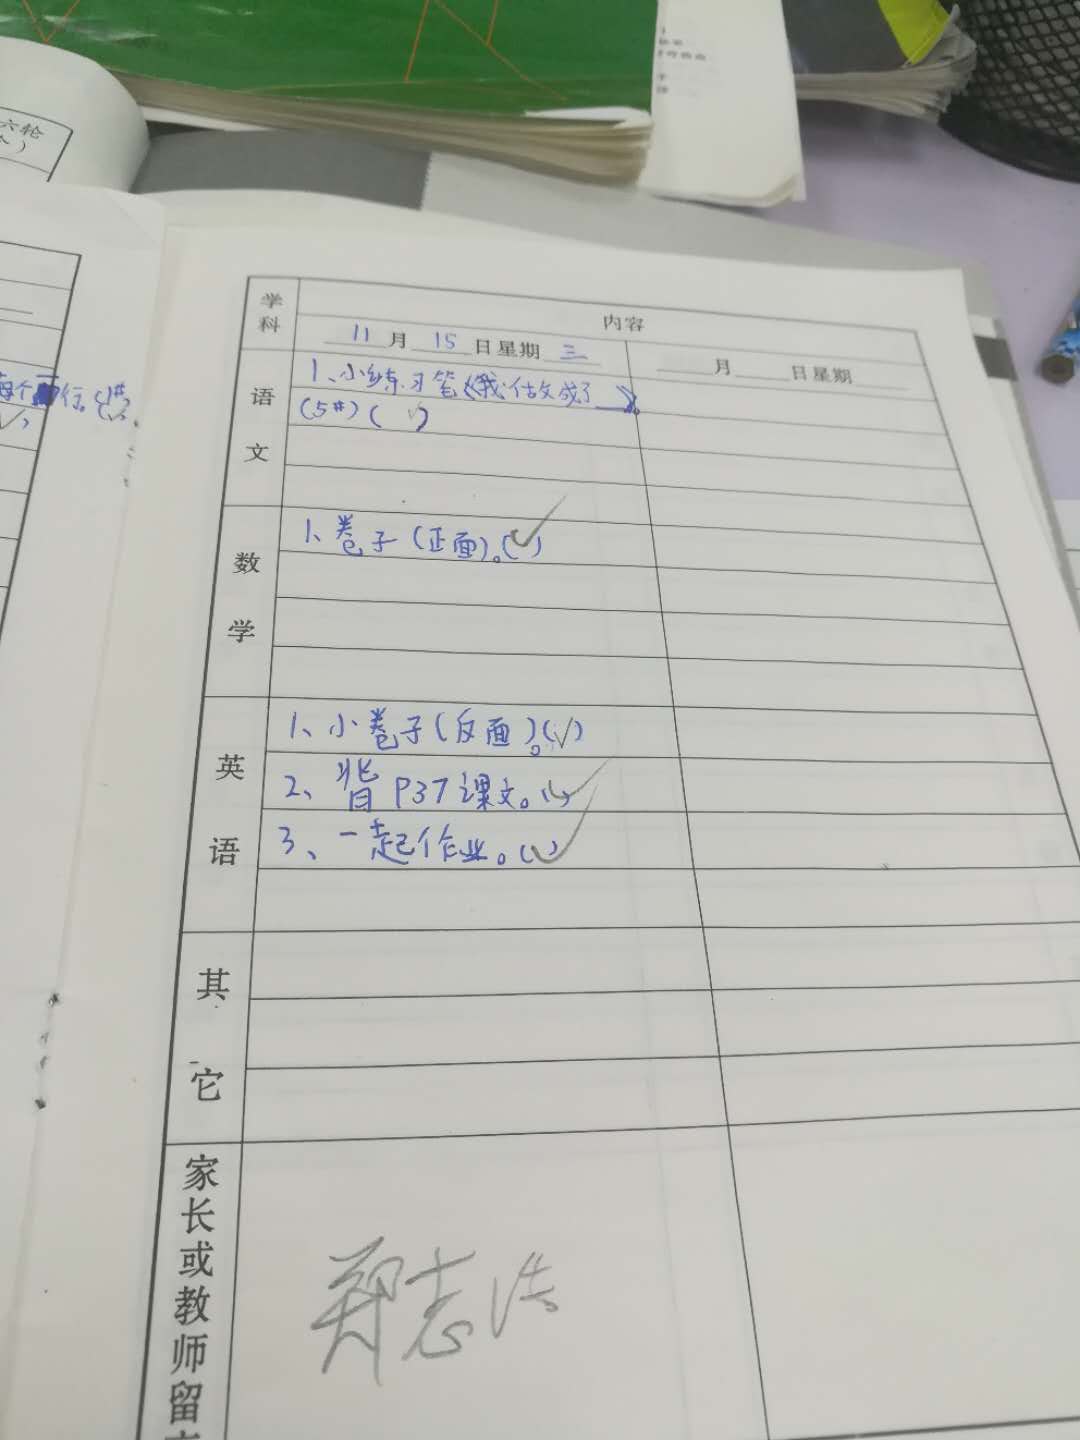 六轮
个）
每个
行。
学科
内容
11月15日星期三
月 日星期
语文
1、小练习笔《我估文成了》。
(5#)(√)
数学
1、卷子(正面)。(√)
英语
1、小卷子(反面)。(√)
2、背P37课文。(√)
3、一起作业。(√)
其它
家长或教师留
郑志浩